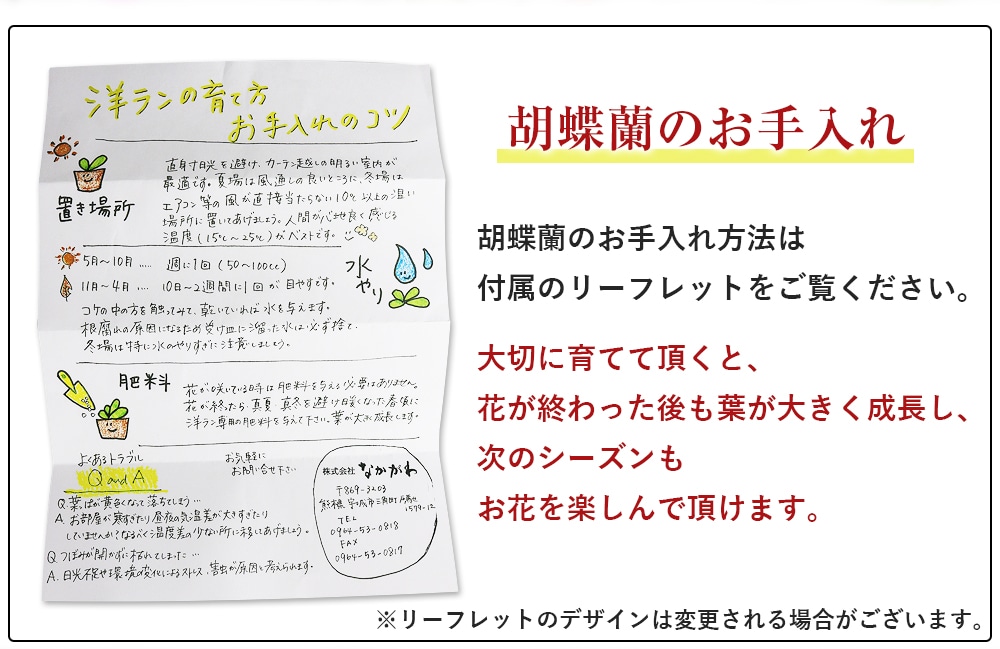 洋ランの育て方
お手入れのコツ
置き場所
直射日光を避け、カーテン越しの明るい室内が
最適です。夏場は風通しの良いところに、冬場は
エアコン等の風が直接当たらない10℃以上の温い
場所に置いてあげましょう。人間が心地良く感じる
温度(15℃〜25℃)がベストです。
水やり
5月〜10月 ..... 週に1回(50〜100cc)
11月〜4月 .... 10日〜2週間に1回が目やすです。
コケの中の方を触ってみて、乾いていれば水を与えます。
根腐れの原因になるため受け皿に溜った水は必ず捨て、
冬場は特に水のやりすぎに注意しましょう。
肥料
花が咲いている時は肥料を与える必要はありません。
花が終ったら真夏、真冬を避け暖くなった春頃に
洋ラン専用の肥料を与えて下さい。葉が大きく成長します。
よくあるトラブル
Q and A
お気軽に
お問い合せ下さい
Q. 葉っぱが黄色くなって落ちてしまう…
A. お部屋が寒すぎたり昼夜の気温差が大きすぎたり
していませんか?なるべく温度差の少ない所に移してあげましょう。
Q. つぼみが開かずに枯れてしまった…
A. 日光不足や環境の変化によるストレス、害虫が原因と考えられます。
株式会社 なかがわ
〒869-3203
熊本県宇城市三角町戸馳
1579-12
TEL
0964-53-0818
FAX
0964-53-0817
胡蝶蘭のお手入れ
胡蝶蘭のお手入れ方法は
付属のリーフレットをご覧ください。
大切に育てて頂くと、
花が終わった後も葉が大きく成長し、
次のシーズンも
お花を楽しんで頂けます。
※リーフレットのデザインは変更される場合がございます。